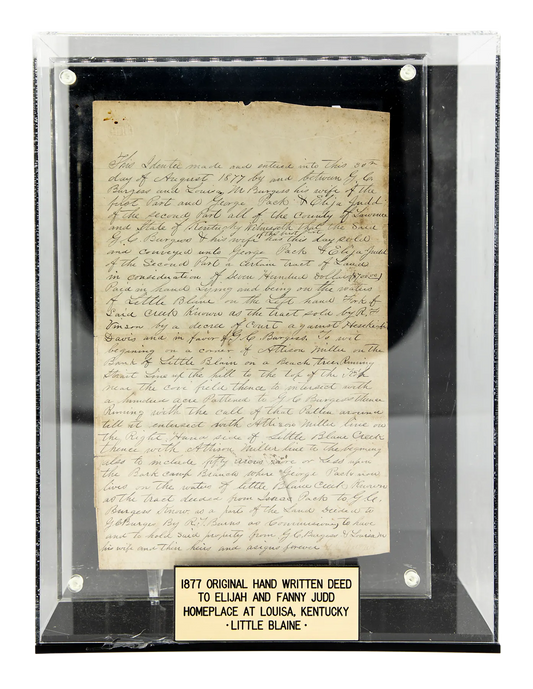 This Identie made and entered into this 30th
day of August 1877 by and between G. C.
Burgess and Louisa M Burgess his wife of the
first Part and George Pack & Elija Judd
of the second Part all of the County of Lawrence
and State of Kentucky Witnesseth that the said
G. C. Burgess & his wife has this day sold
and conveyed unto George Pack & Elija Judd
of the Second Part a certain tract of Land
in consideration of Seven Hundred Dollars
Paid in hand Lying and being on the waters
of Little Blaine on the Left hand Fork of
Said Creek Known as the tract sold by R. F.
Vinson by a decree of Court against
Davis and in favor of G. C. Burgess. To wit
begining on a corner of Athison Miller on the
Bank of Little Blain on a Beach tree Runing
Strait Line of the hill to the top of the
near the cove field thence to intersect with
a hundred acre Pattend to G. C Burgess thence
Runing with the call of that Patten around
till it intersect with Athison Miller line on
the Right Hand side of Little Blaine Creek
thence with Athison Miller line to the begining
also to include fifty acres more or Less upon
the Bark camp Branch where George Pack now
lives on the water of Little Blaine Creek Known
as the tract deeded from Louisa Pack to G. C.
Burgess Know as a part of the Land deeded to
G. C Burges By R. F. Burns as Commissiong to have
and to hold said property from G. C. Burgess & Louisa M
his wife and their heirs and asigns forever
1877 ORIGINAL HAND WRITTEN DEED
TO ELIJAH AND FANNY JUDD
HOMEPLACE AT LOUISA, KENTUCKY
· LITTLE BLAINE ·